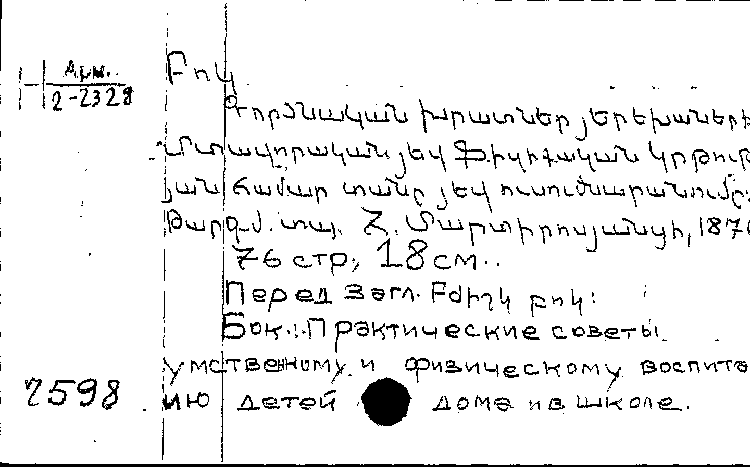 Арм.
2-2328
Բոկ
Գործնական խրատներ յերեխաների
մտավորական յեվ ֆիզիքական կրթութ
յան համար տանը յեվ ուսումնարանումը:
Թարգմ. տպ. Հ. Մարտիրոսյանցի, 187
76 стр., 18 см..
Перед загл. Բժիշկ բոկ:
Бок.: Практические советы
умственному и физическому воспита
ию детей дома и в школе.
2598